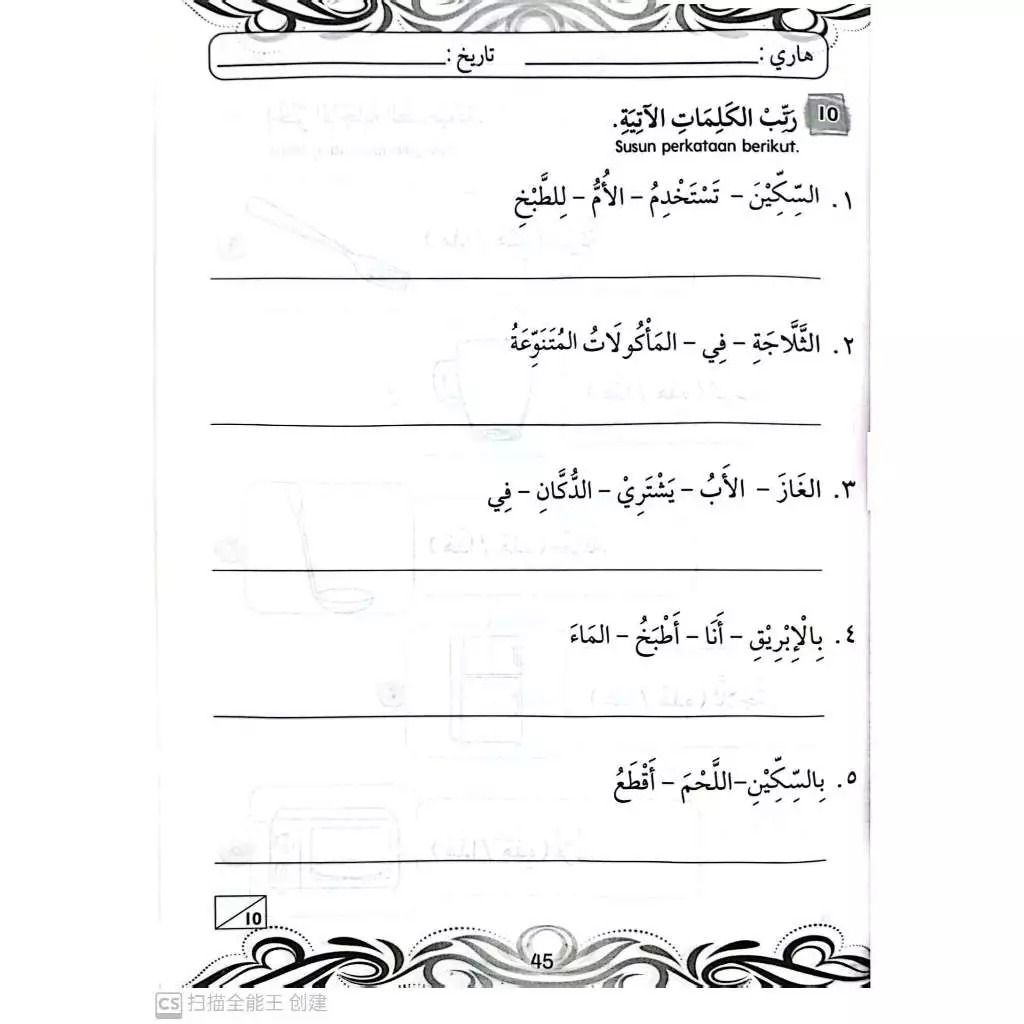 هاري : ________ تاريخ : ________
10 رَتِّبْ الكَلِمَاتِ الآتِيَةِ.
Susun perkataan berikut.
١. السِّكِّيْنَ – تَسْتَخْدِمُ – الأُمُّ – لِلطَّبْخِ
٢. الثَّلَّاجَةِ – فِي – المَأْكُولَاتُ المُتَنَوِّعَةُ
٣. الغَازَ – الأَبُ – يَشْتَرِيْ – الدُّكَّانِ – فِي
٤. بِالْإِبْرِيْقِ – أَنَا – أَطْبَخُ – المَاءَ
٥. بِالسِّكِّيْنِ–اللَّحْمَ – أَقْطَعُ
10
45
CS 扫描全能王 创建